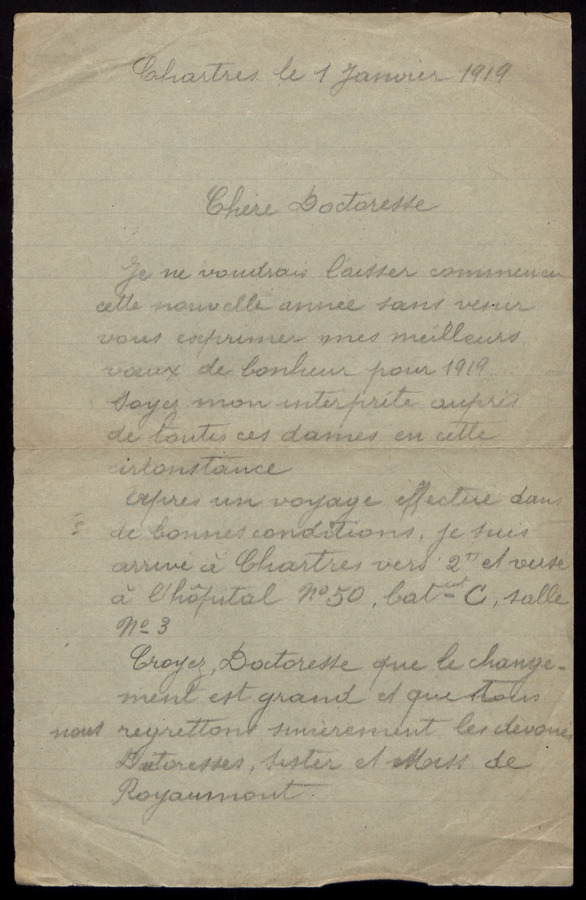 Chartres le 1 Janvier 1919
Chère Doctoresse
Je ne voudrais laisser commencer
cette nouvelle année sans venir
vous exprimer mes meilleurs
vœux de bonheur pour 1919.
Soyez mon interprète auprès
de toutes ces dames en cette
circonstance
Après un voyage effectué dans
de bonnes conditions, je suis
arrivé à Chartres vers 2 et versé
à l'hôpital No 50, bat C, salle
No 3
Croyez, Doctoresse que le change-
ment est grand et que tous
nous regrettons sincèrement les devoués
Doctoresses, Sister et Miss de
Royaumont.